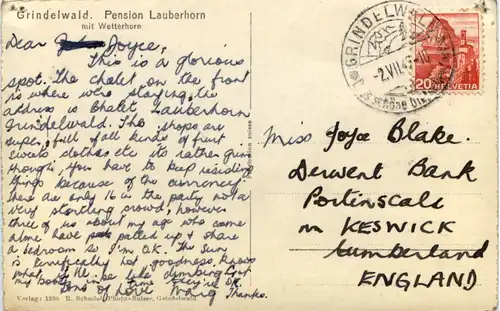 Grindelwald. Pension Lauberhorn
mit Wetterhorn
Dear Joyce,
This is a glorious
spot. The chalet on the front
is where were staying the
address is Chalet Lauberhorn
Grindelwald. The shops are
super, full of all kinds of fruit
sweets clothes etc its rather grim
though, you have to keep
things because of the currency.
there are only 16 in the party not a
very startling crowd, however
three of us about my age who came
alone have palled up & share
a bedroom so I'm O.K. The sun
is terrifically hot, goodness knows
what it'll be like climbing. Got
my boots in time they're O.K.
tons of love Thanks.
Verlag: 1200 R. Schudel, Photo-Suisse, Grindelwald
GRINDELWALD
2.VII.4
20 HELVETIA
Miss Joyce Blake.
Derwent Bank
Portinscale
nr KESWICK
Cumberland
ENGLAND